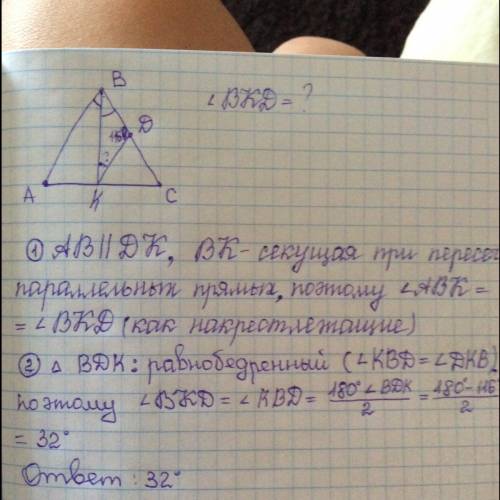 B
∠BKD = ?
D
116°
?
A
K
C
① AB || DK, BK - секущая при пересеч
параллельных прямых, поэтому ∠ABK =
= ∠BKD (как накрестлежащие)
② △ BDK: равнобедренный (∠KBD = ∠DKB)
поэтому ∠BKD = ∠KBD = 180° ∠BDK / 2 = 180° - 116 / 2
= 32°
Ответ: 32°